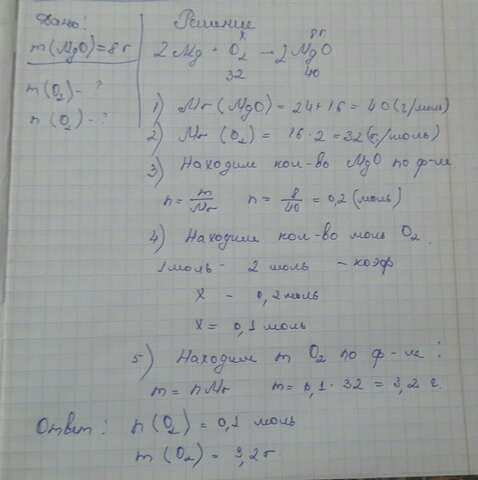 Дано:
m(MgO)=8г
m(O₂)-?
n(O₂)-?
Решение
x 8г
2Mg + O₂ → 2MgO
32 40
1) Mr(MgO) = 24+16 = 40(г/моль)
2) Mr(O₂) = 16·2 = 32(г/моль)
3) Находим кол-во MgO по ф-ле
n = m/Mr n = 8/40 = 0,2(моль)
4) Находим кол-во моль O₂.
1 моль - 2 моль - коэф
X - 0,2 моль
X = 0,1 моль
5) Находим m O₂ по ф-ле:
m = nMr m = 0,1·32 = 3,2 г.
Ответ: n(O₂) = 0,1 моль
m(O₂) = 3,2г